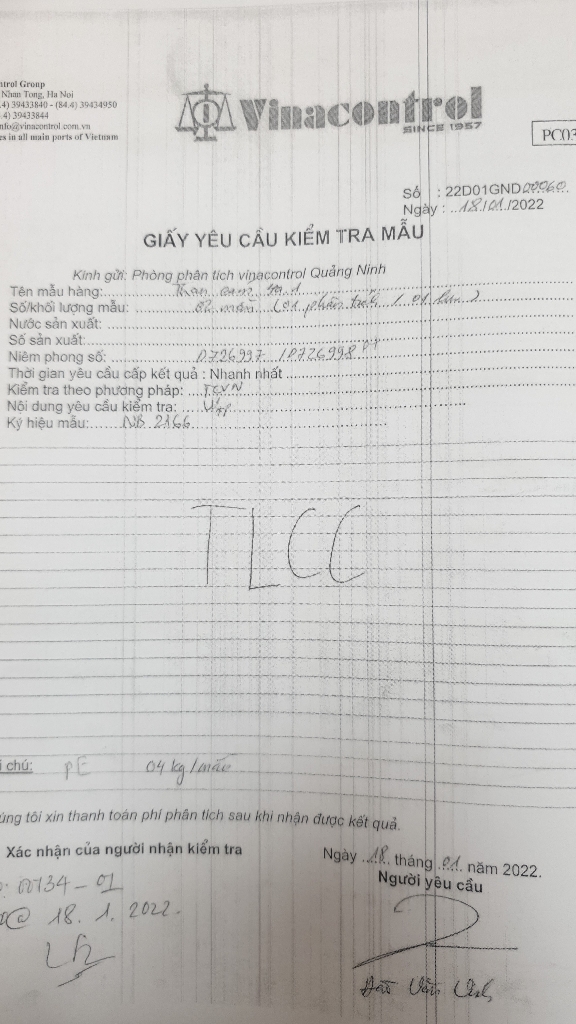 ntrol Group
Nhan Tong, Ha Noi
.4) 39433840 - (84.4) 39434950
.4) 39433844
nfo@vinacontrol.com.vn
es in all main ports of Vietnam
Vinacontrol
SINCE 1957
PC03
Số : 22D01GND
Ngày : 18/01/2022
GIẤY YÊU CẦU KIỂM TRA MẪU
Kính gửi: Phòng phân tích vinacontrol Quảng Ninh
Tên mẫu hàng: Than cam
Số/khối lượng mẫu: 02 mẫu (01 phân tích / 01 lưu)
Nước sản xuất:
Số sản xuất:
Niêm phong số: 0726997 / 0726998
Thời gian yêu cầu cấp kết quả : Nhanh nhất
Kiểm tra theo phương pháp: TCVN
Nội dung yêu cầu kiểm tra:
Ký hiệu mẫu: NB 2166
TLCC
i chú: PE 04 kg/mẫu
úng tôi xin thanh toán phí phân tích sau khi nhận được kết quả.
Xác nhận của người nhận kiểm tra
Ngày 18 tháng 01 năm 2022.
Người yêu cầu
00134-01
18.1.2022.
Đào Văn Vinh